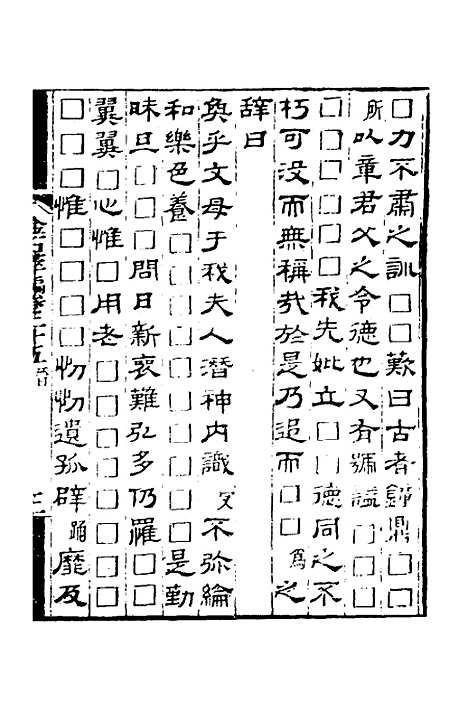 □力不肅之訓□□歎曰古者鍾鼎□□
所以章君父之令德也又有號謚□□□
□□□□□我先妣立□□德同之不
朽可没而無稱哉於是乃追而□□為之
辭曰
奐乎文母于我夫人潛神内識文不弥綸
和樂色養□□□□□□□□是勤
昧旦□□問日新哀難弘多仍羅□□
翼翼□心惟□用老□□□□□□□
□□□惟□□□物物遺孤辟踊靡及
金石萃編卷二十五 晉